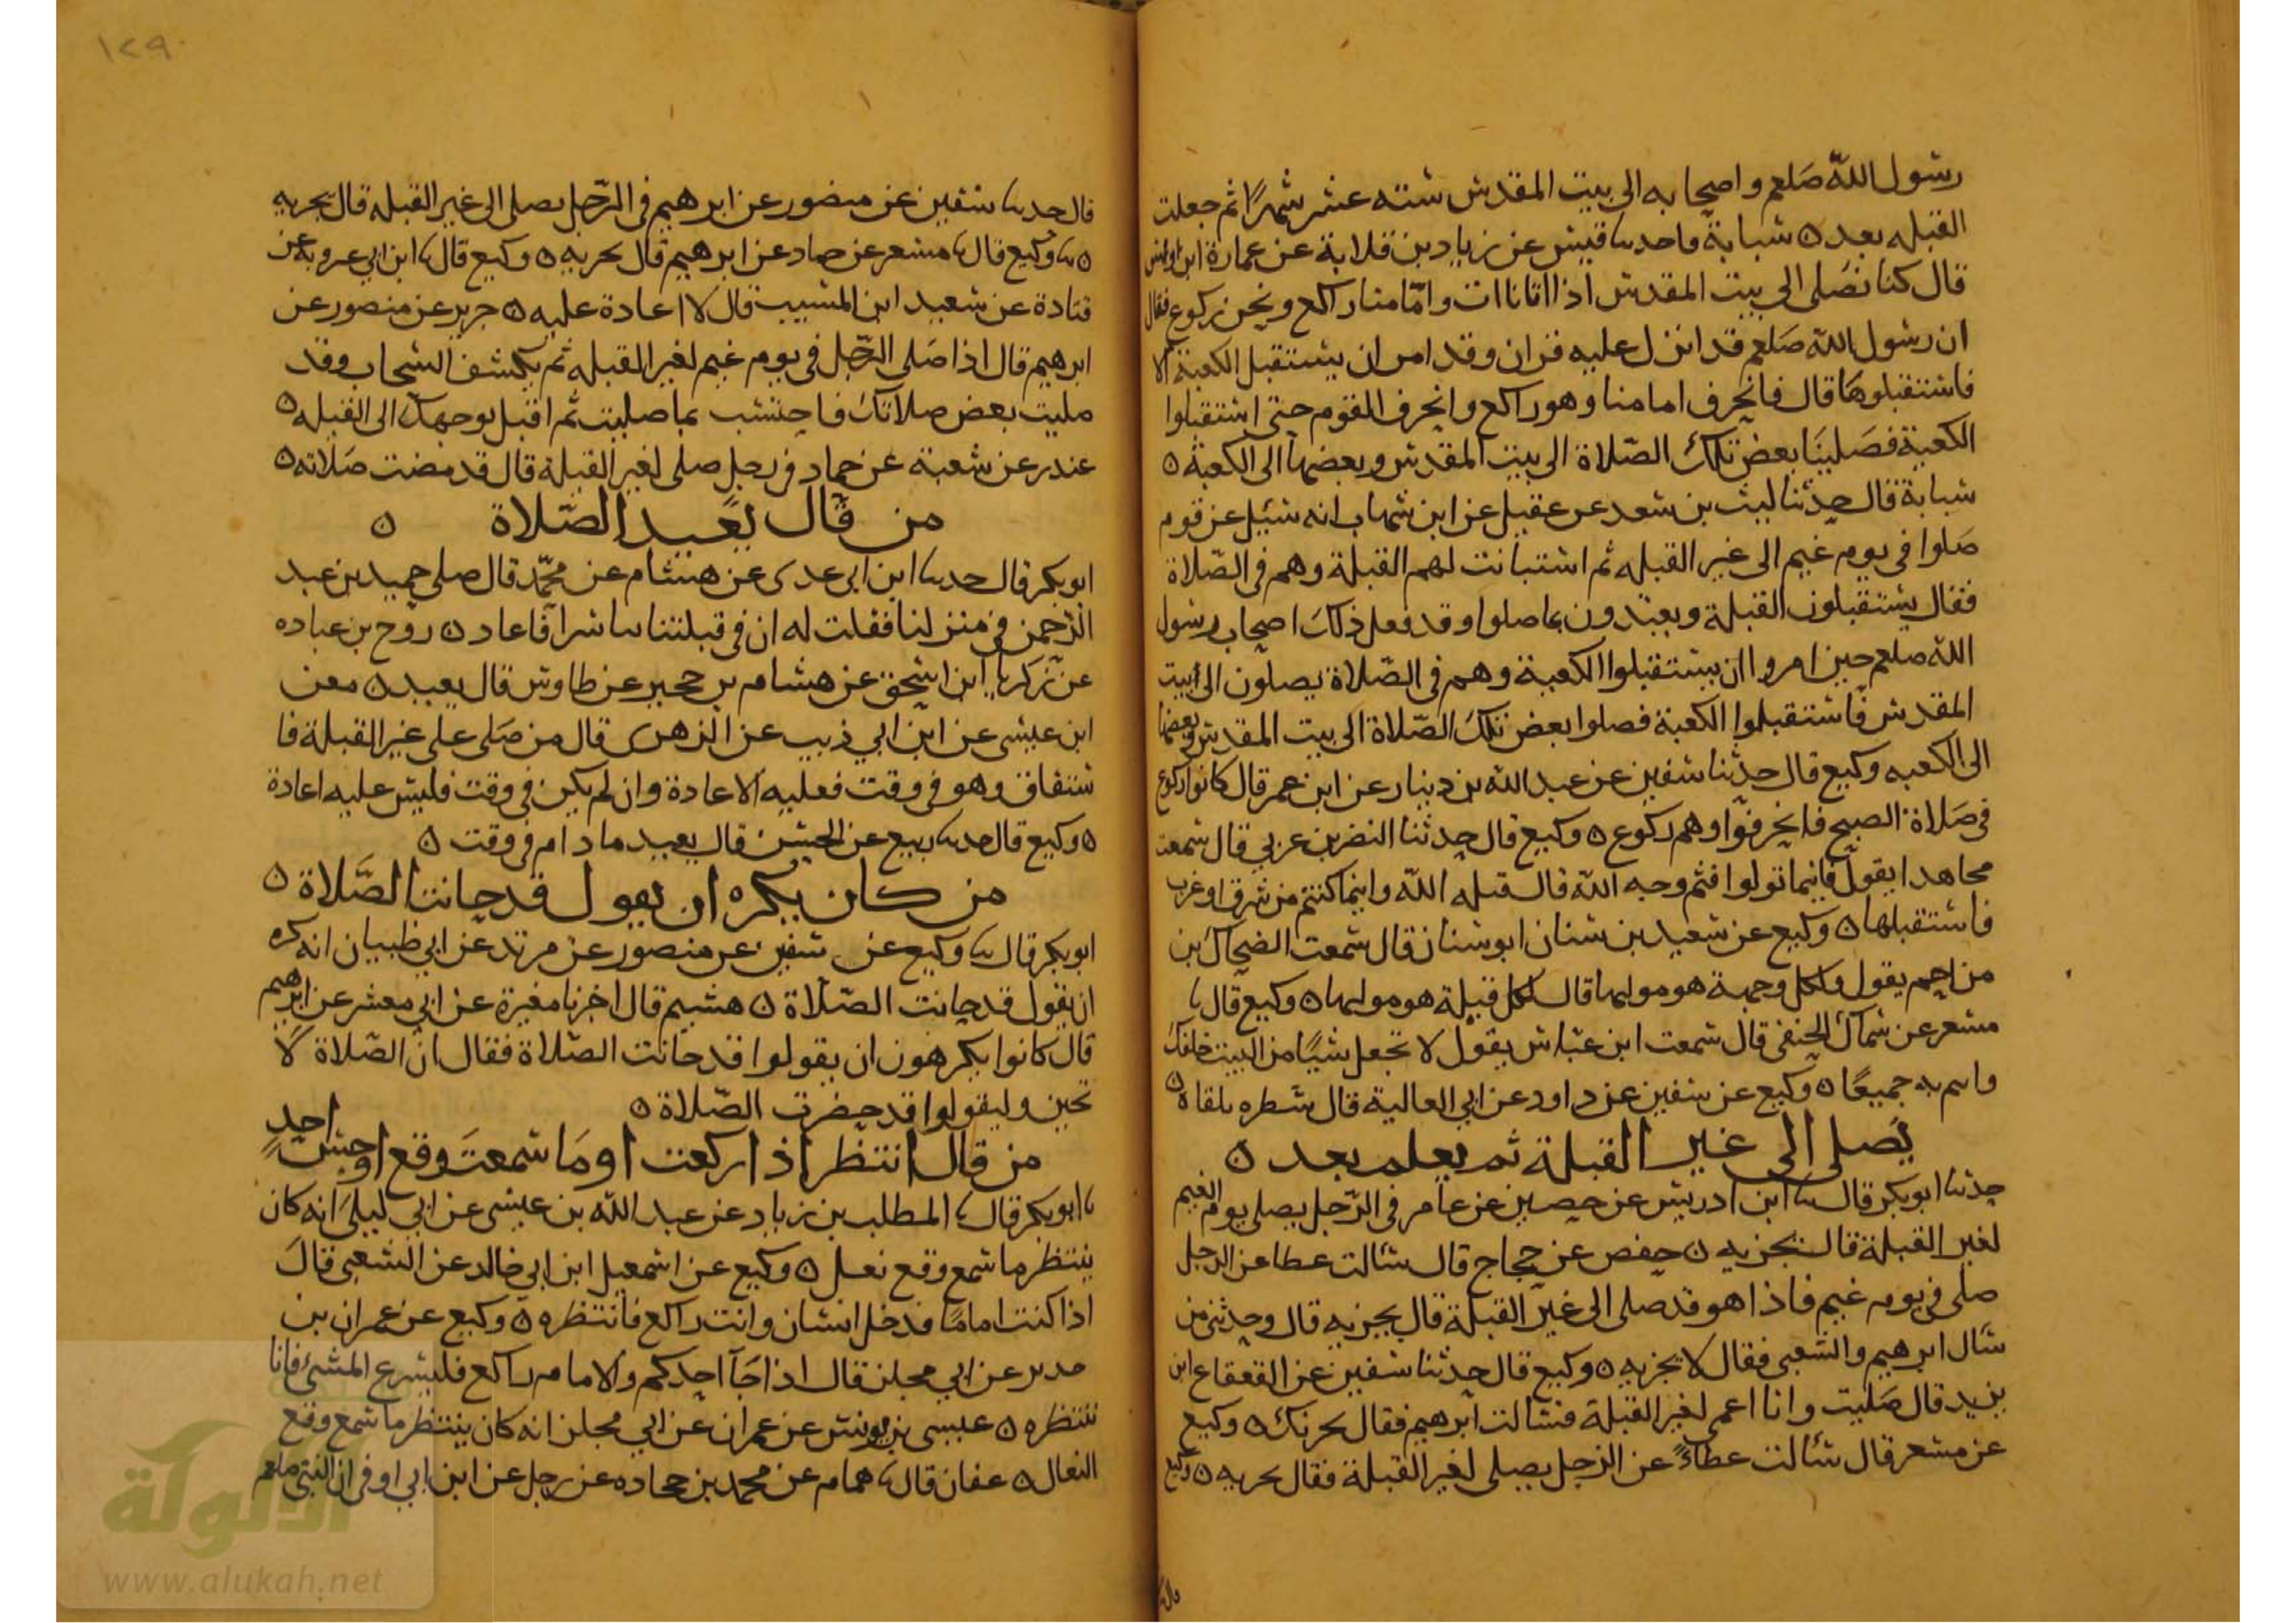 رسول الله صلعم واصحابه الى بيت المقدس سته عشر شهرًا ثم جعلت
القبله بعد ه شبابة قاحدثنا قيس عن زياد بن قلابة عن عمارة ابن اوس
قال كنا نصلى الى بيت المقدس اذا اتانا ات وامّا منا راكع ونحن ركوع فقال
ان رسول الله صلعم قد انزل عليه قران وقد امر ان يستقبل الكعبة الا
فاستقبلوها قال فانحرف امامنا وهو راكع وانحرف القوم حتى استقبلوا
الكعبة فصلينا بعض تلك الصّلاة الى بيت المقدس وبعضها الى الكعبة ه
شبابة قال حدثنا ليث بن سعد عن عقيل عن ابن شهاب انه سئيل عن قوم
صلوا في يوم غيم الى غير القبله ثم استبانت لهم القبلة وهم في الصّلاة
فقال يستقبلون القبلة ويعتدون بما صلوا وقد فعل ذلك اصحاب رسول
الله صلعم حين امروا ان يستقبلوا الكعبة وهم في الصّلاة يصلون الى بيت
المقدس فاستقبلوا الكعبة فصلوا بعض تلك الصّلاة الى بيت المقدس وبعضها
الى الكعبه وكيع قال حدثنا سفين عن عبد الله بن دينار عن ابن عمر قال كانوا ركوع
في صلاة الصبح فانحرفوا وهم ركوع ه وكيع قال حدثنا النضر بن عربي قال سمعت
مجاهدا يقول فاينما تولوا فثم وجه الله قال قبله الله واينما كنتم من شرق او غرب
فاستقبلها ه وكيع عن سعيد بن سنان ابو سنان قال سمعت الضحاك بن
مزاحم يقول ولكل وجهة هو موليها قال لكل قبيلة هو موليها ه وكيع قال نا
مسعر عن سماك الحنفي قال سمعت ابن عباس يقول لا تجعل شيئًا من البيت خلفك
واتم به جميعًا ه وكيع عن سفين عن داود عن ابي العالية قال شطره تلقاه ه
يصلي الى غير القبلة ثم يعلم بعد ه
حدثنا ابو بكر قال نا ابن ادريس عن حصين عن عامر في الرّجل يصلي يوم الغيم
لغير القبلة قال تجزيه ه حفص عن حجاج قال سالت عطا عن الرجل
صلى في يوم غيم فاذا هو قد صلى الى غير القبلة قال يجزيه قال وحدثني من
سال ابرهيم والشعبي فقال لا تجزيه ه وكيع قال حدثنا سفين عن القعقاع ابن
يزيد قال صليت وانا اعمى لغير القبلة فسالت ابرهيم فقال يحزنك ه وكيع
عن مسعر قال سالت عطاءً عن الرجل يصلى لغير القبلة فقال يجزيه ه وكيع
١٢٩
قال حدثنا سفين عن منصور عن ابرهيم في الرّجل يصلى الى غير القبله قال يجزيه
ه نا وكيع قال نا مسعر عن حماد عن ابرهيم قال يجزيه ه وكيع قال نا ابن ابي عروبة عن
قتادة عن سعيد ابن المسيب قال لا اعادة عليه ه جرير عن منصور عن
ابرهيم قال اذا صلى الرّجل في يوم غيم لغير القبله ثم تكشف السحاب وقد
صليت بعض صلاتك فاحتسب بما صليت ثم اقبل بوجهك الى القبله ه
غندر عن شعبة عن حماد في رجل صلى لغير القبلة قال قد مضت صلاته ه
من قال يعيد الصّلاة ه
ابو بكر قال حدثنا ابن ابي عدي عن هشام عن محمّد قال صلى حميد بن عبد
الرّحمن في منزلنا فقلت له ان في قبلتنا تياسرا فاعاد ه روح بن عباده
عن زكريا ابن اسحق عن هشام بن حجير عن طاوس قال يعيد ه معن
ابن عيسى عن ابن ابي ذيب عن الزهري قال من صلى على غير القبلة فا
ستفاق وهو في وقت فعليه الاعادة وان لم يكن في وقت فليس عليه اعادة
ه وكيع قال حدثنا ربيع عن الحسن قال يعيد ما دام في وقت ه
من كان يكره ان يقول قد حانت الصّلاة ه
ابو بكر قال نا وكيع عن سفين عن منصور عن مرثد عن ابي ظبيان انه كره
ان يقول قد حانت الصّلاة ه هشيم قال اخرنا مغيرة عن ابي معشر عن ابرهيم
قال كانوا يكرهون ان يقولوا قد حانت الصّلاة فقال ان الصّلاة لا
تحين وليقولوا قد حضرت الصّلاة ه
من قال انتظر اذا ركعت او ما سمعت وقع او حسّ احدٍ
نا ابو بكر قال نا المطلب بن زياد عن عبد الله بن عيسى عن ابي ليلى انه كان
ينتظر ما سمع وقع نعل ه وكيع عن اسمعيل ابن ابي خالد عن الشعبي قال
اذا كنت امامًا فدخل انسان وانت راكع فانتظره ه وكيع عن عمران بن
حدير عن ابي مجلز قال اذا جآ احدكم والامام راكع فليسرع المشي فانا
ننتظره ه عيسى بن يونس عن عمران عن ابي مجلز انه كان ينتظر ما سمع وقع
النعال ه عفان قال نا همام عن محمد بن جحاده عن رجل عن ابن ابي اوفى ان النبي صلعم
الألوكة
www.alukah.net